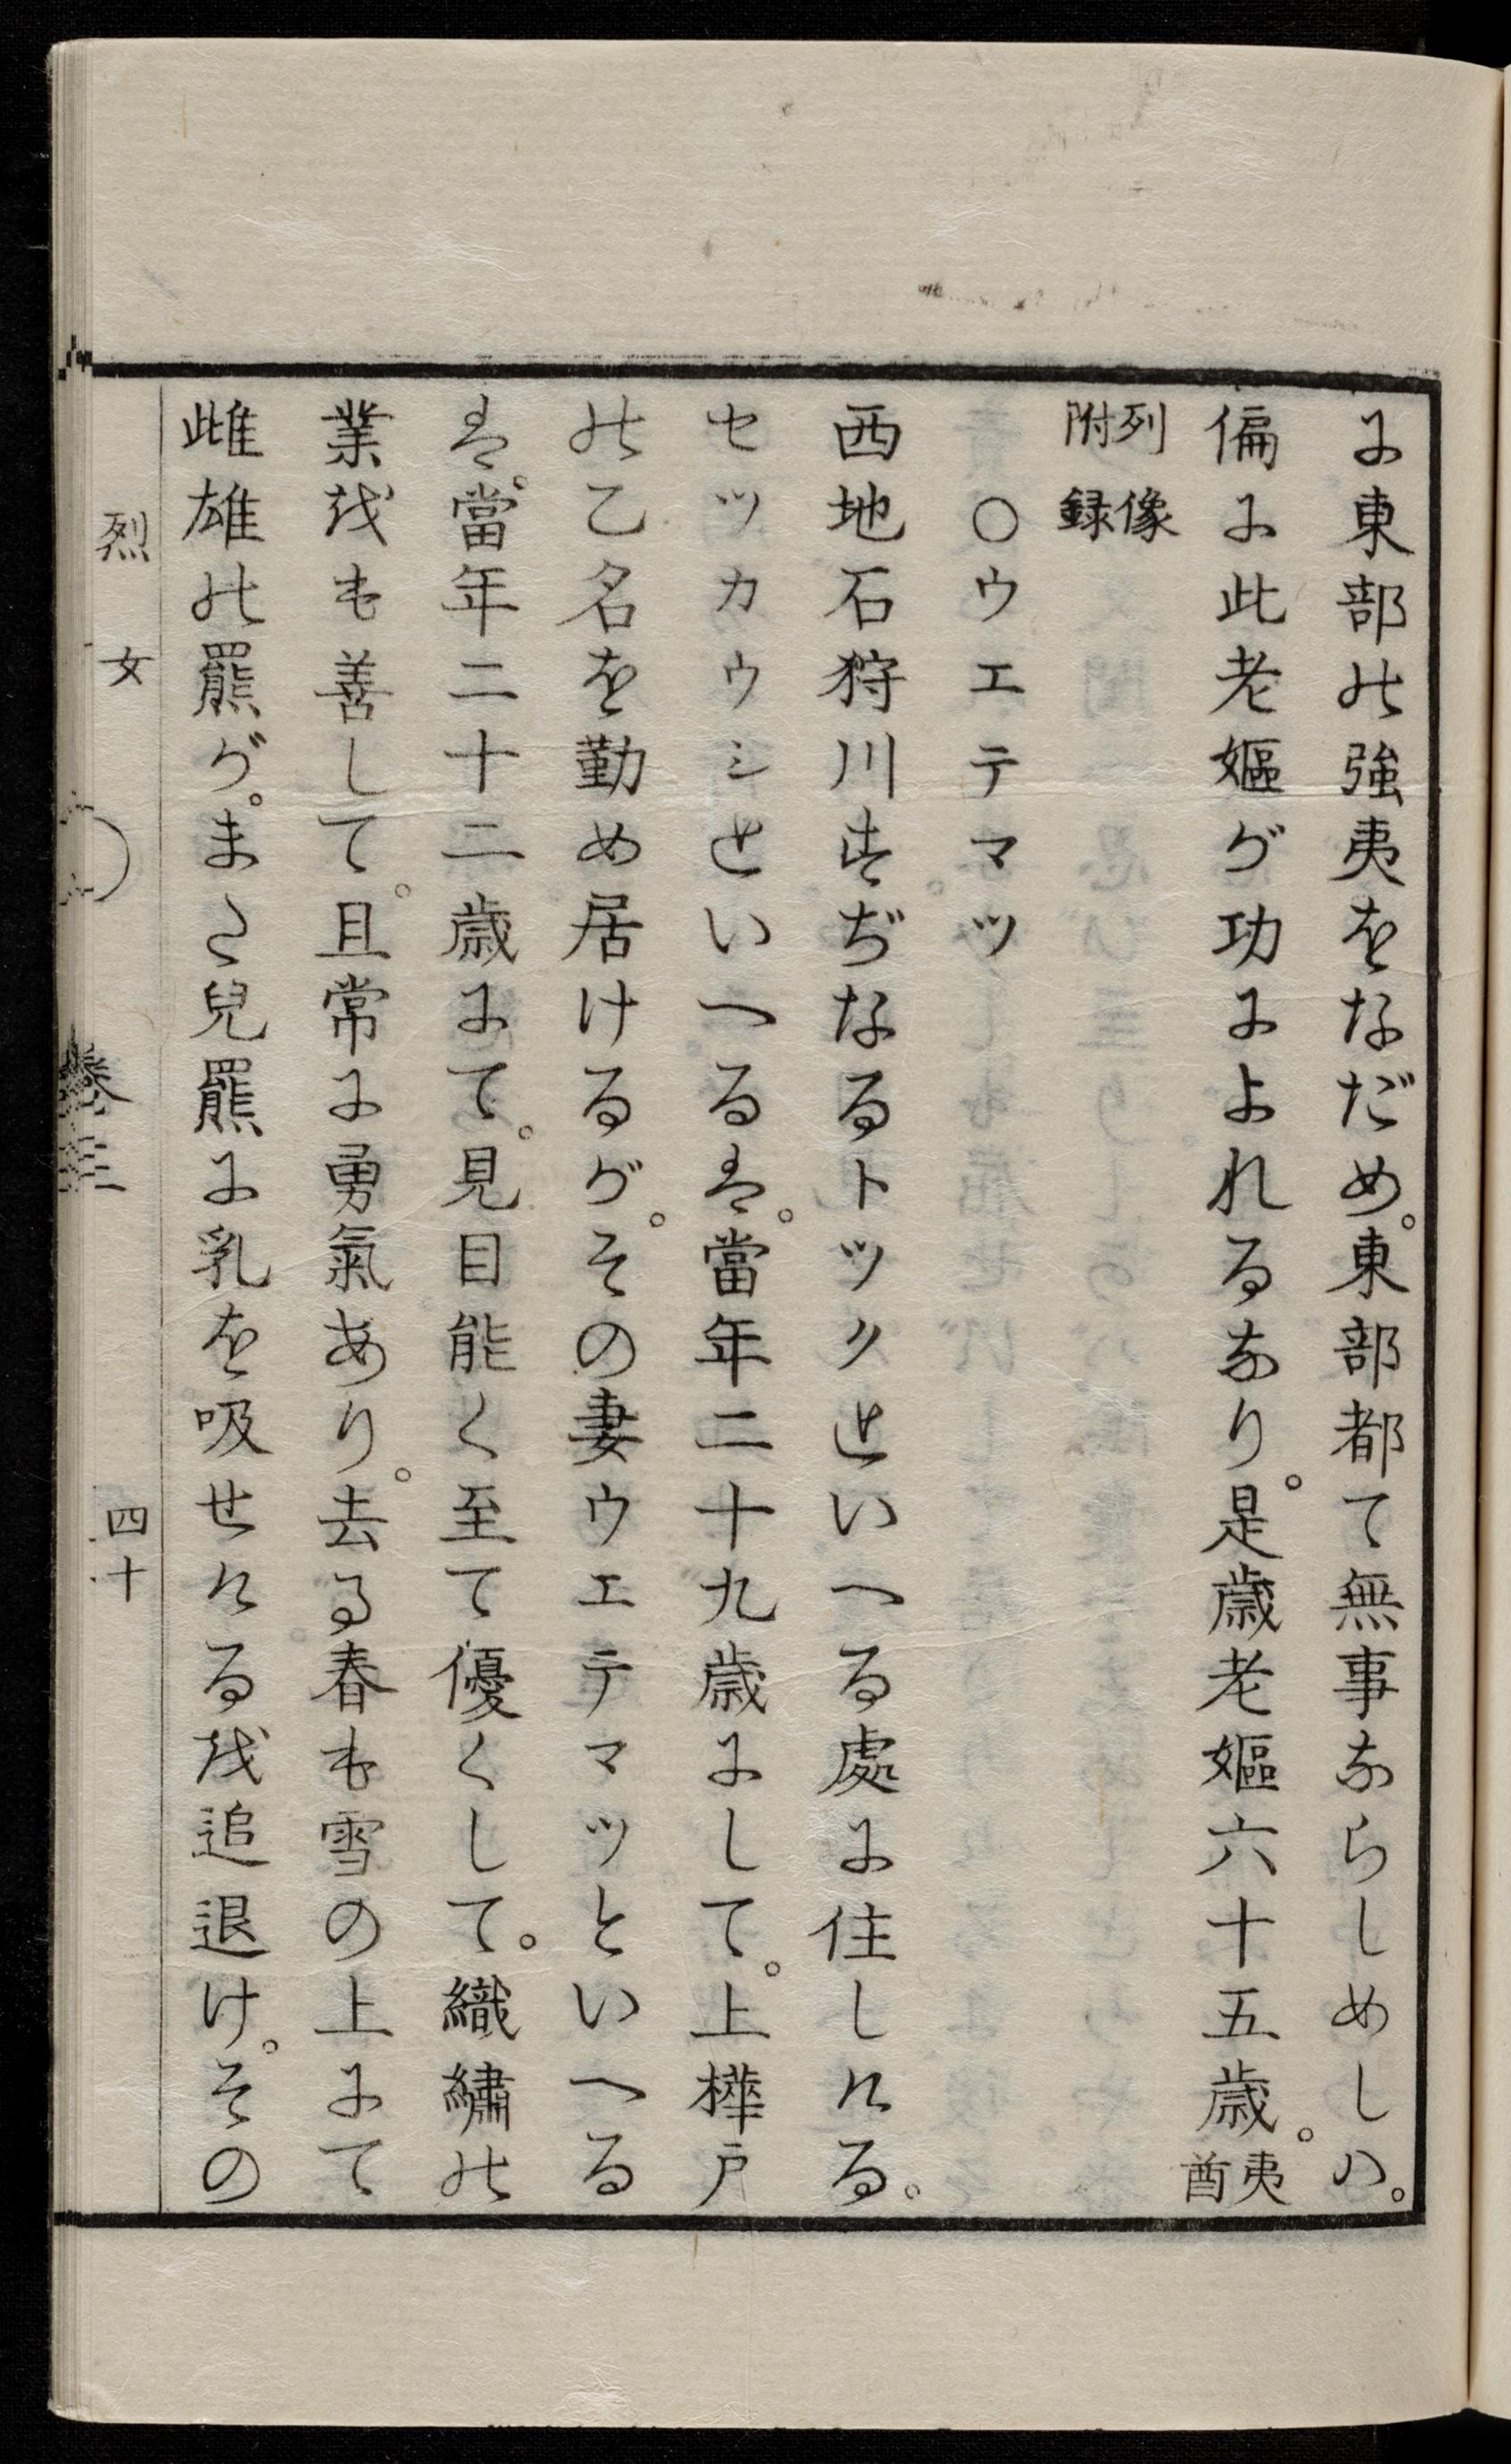 に東部の強夷をなだめ。東部都て無事ならしめしハ。
偏に此老嫗が功によれるなり。是歳老嫗六十五歳。夷酋
列像附録
○ウエテマツ
西地石狩川すぢなるトツクといへる處に住しける。
セツカウシといへるは。當年二十九歳にして。上樺戸
の乙名を勤め居けるが。その妻ウエテマツといへる
は。當年二十二歳にて。見目能く至て優くして。織繡の
業をも善して。且常に勇氣あり。去る春も雪の上にて
雌雄の羆が。また兒羆に乳を吸せけるを追退け。その
烈女　卷三　四十